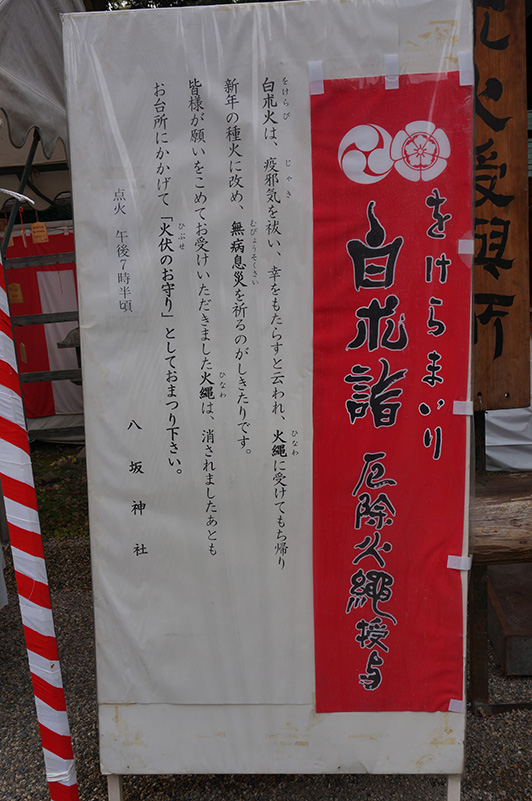 火授与所
をけらまいり
白朮詣 厄除火縄授与
をけらび じゃき ひなわ
白朮火は、疫邪気を祓い、幸をもたらすと云われ、火縄に受けてもち帰り
むびょうそくさい
新年の種火に改め、無病息災を祈るのがしきたりです。
ひなわ
皆様が願いをこめてお受けいただきました火縄は、消されましたあとも
ひぶせ
お台所にかかげて「火伏のお守り」としておまつり下さい。
点火 午後7時半頃
八坂神社